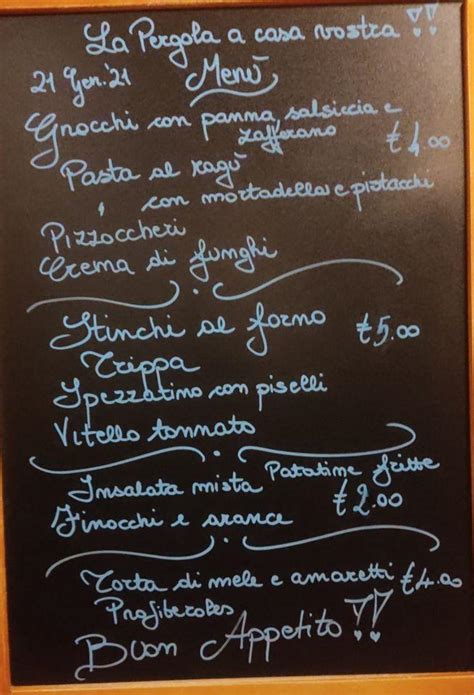 La Pergola a casa nostra !!
21 Gen.'21 Menù
Gnocchi con panna, salsiccia e
zafferano €4.00
Pasta al ragù
" con mortadella e pistacchi
Pizzoccheri
Crema di funghi
Stinchi al forno €5.00
Trippa
Spezzatino con piselli
Vitello tonnato
Patatine fritte
Insalata mista €2.00
Finocchi e arance
Torta di mele e amaretti €4.00
Profiteroles
Buon Appetito !!